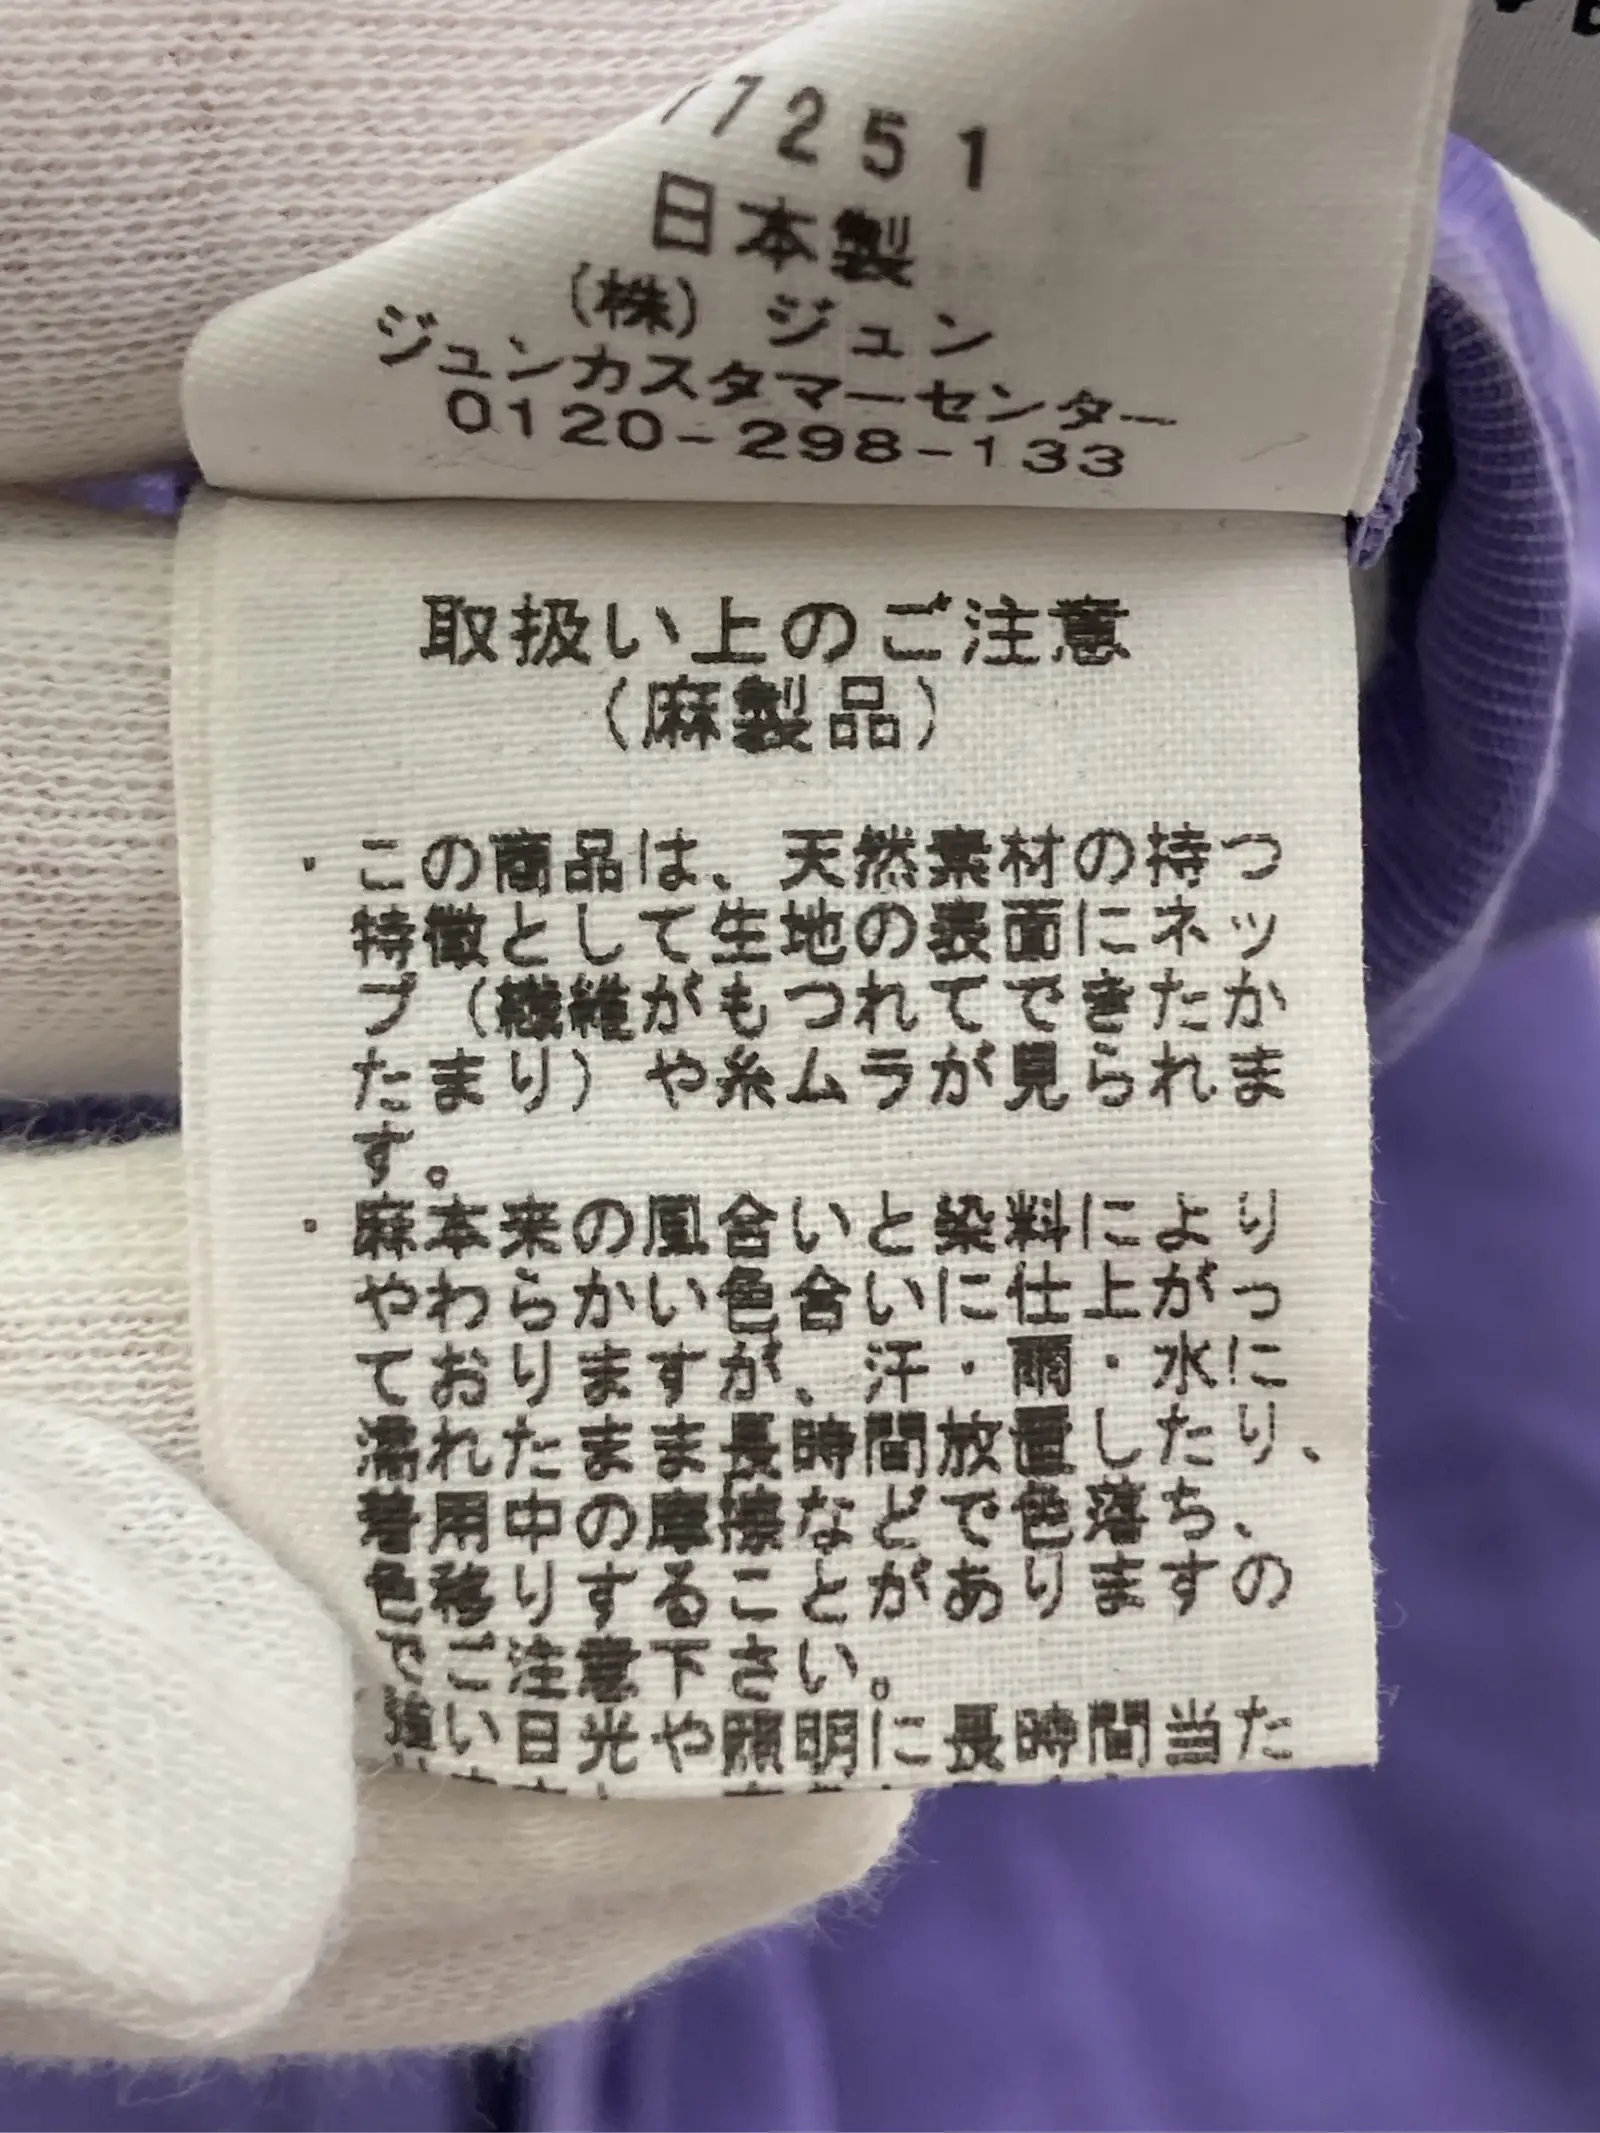 7251
日本製
(株) ジュン
ジュンカスタマーセンター
0120-298-133
取扱い上のご注意
(麻製品)
・この商品は、天然素材の持つ
特徴として生地の表面にネッ
プ(繊維がもつれてできたか
たまり)や糸ムラが見られま
す。
・麻本来の風合いと染料により
やわらかい色合いに仕上がっ
ておりますが、汗・雨・水に
濡れたまま長時間放置したり、
着用中の摩擦などで色落ち、
色移りすることがありますの
でご注意下さい。
強い日光や照明に長時間当た